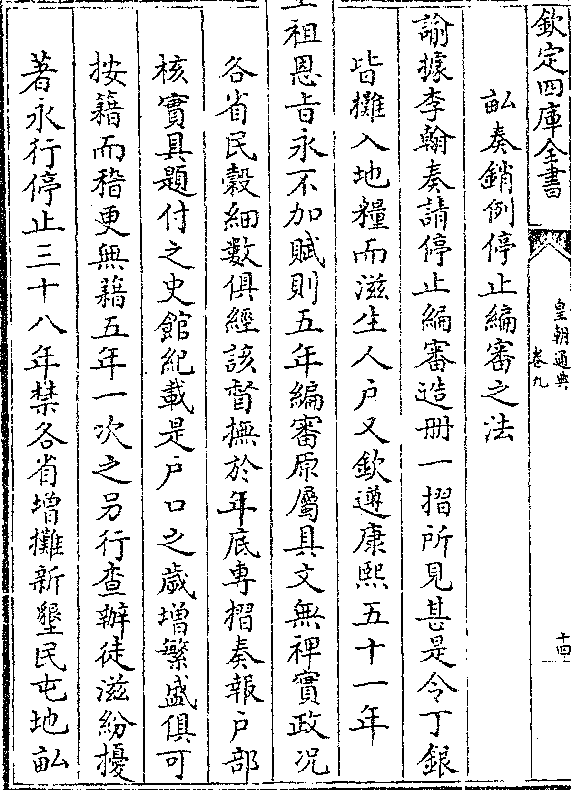 欽定四庫全書
皇朝通典
卷九
十四
畝奏銷例停止編審之法
諭據李翰奏請停止編審造册一摺所見甚是今丁銀
皆攤入地糧而滋生人户又欽遵康熙五十一年
祖恩㫖永不加賦則五年編審原屬具文無裨實政况
各省民穀細數俱經該督撫於年底專摺奏報户部
核實具題付之史館紀載是户口之歳增繁盛俱可
按籍而稽更無藉五年一次之另行查辦徒滋紛擾
著永行停止三十八年禁各省增攤新墾民屯地畝